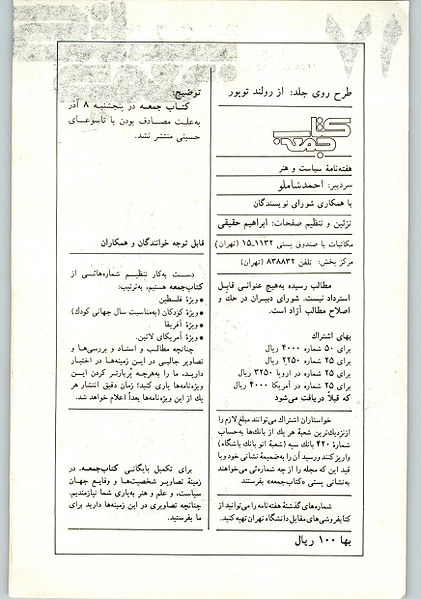 طرح روی جلد: از رولند توپور
کتاب جمعه
هفته‌نامهٔ سیاست و هنر
سردبیر: احمد شاملو
با همکاری شورای نویسندگان
تزئین و تنظیم صفحات: ابراهیم حقیقی
مکاتبات با صندوق پستی ۱۱۳۲-۱۵ (تهران)
مرکز پخش: تلفن ۸۳۸۸۳۲ (تهران)
مطالب رسیده به‌هیچ عنوانی قابل
استرداد نیست. شورای دبیران در حک و
اصلاح مطالب آزاد است.
بهای اشتراک
برای ۵۰ شماره ۴۰۰۰ ریال
برای ۲۵ شماره ۲۲۵۰ ریال
برای ۲۵ شماره در اروپا ۳۲۵۰ ریال
برای ۲۵ شماره در آمریکا ۴۰۰۰ ریال
که قبلاً دریافت می‌شود
خواستاران اشتراک می‌توانند مبلغ لازم را
از نزدیک‌ترین شعبهٔ هر یک از بانک‌ها به‌حساب
شمارهٔ ۴۲۰ بانک سپه (شعبهٔ اتو بانک باشگاه)
واریز کنند و رسید آن را به‌ضمیمهٔ نشانی خود و با
قید این که مجله را از چه شماره‌ئی می‌خواهند
به‌نشانی پستی «کتاب‌جمعه» بفرستند
شماره‌های گذشتهٔ هفته‌نامه را می‌توانید از
کتابفروشی‌های مقابل دانشگاه تهران تهیه کنید.
بها ۱۰۰ ریال
توضیح:
کتاب جمعه در پنجشنبه ۸ آذر
به‌علت مصادف بودن با تاسوعای
حسینی منتشر نشد.
قابل توجه خوانندگان و همکاران
دست به‌کار تنظیم شماره‌هائی از
کتاب‌جمعه هستیم، به‌ترتیب:
• ویژهٔ فلسطین
• ویژهٔ کودکان (به‌مناسبت سال جهانی کودک)
• ویژهٔ آفریقا
• ویژهٔ آمریکای لاتین.
چنانچه مطالب و اسناد و بررسی‌ها و
تصاویر جالبی در این زمینه‌ها در اختیار
دارید، ما را به‌هرچه پُربارتر کردن این
ویژه‌نامه‌ها یاری کنید! زمان دقیق انتشار هر
یک از این ویژه‌نامه‌ها بعداً اعلام خواهد شد.
برای تکمیل بایگانی کتاب‌جمعه، در
زمینهٔ تصاویر شخصیت‌ها و وقایع جهان
سیاست، و علم و هنر به‌یاری شما نیازمندیم.
چنانچه تصاویری در این زمینه‌ها دارید برای
ما بفرستید.